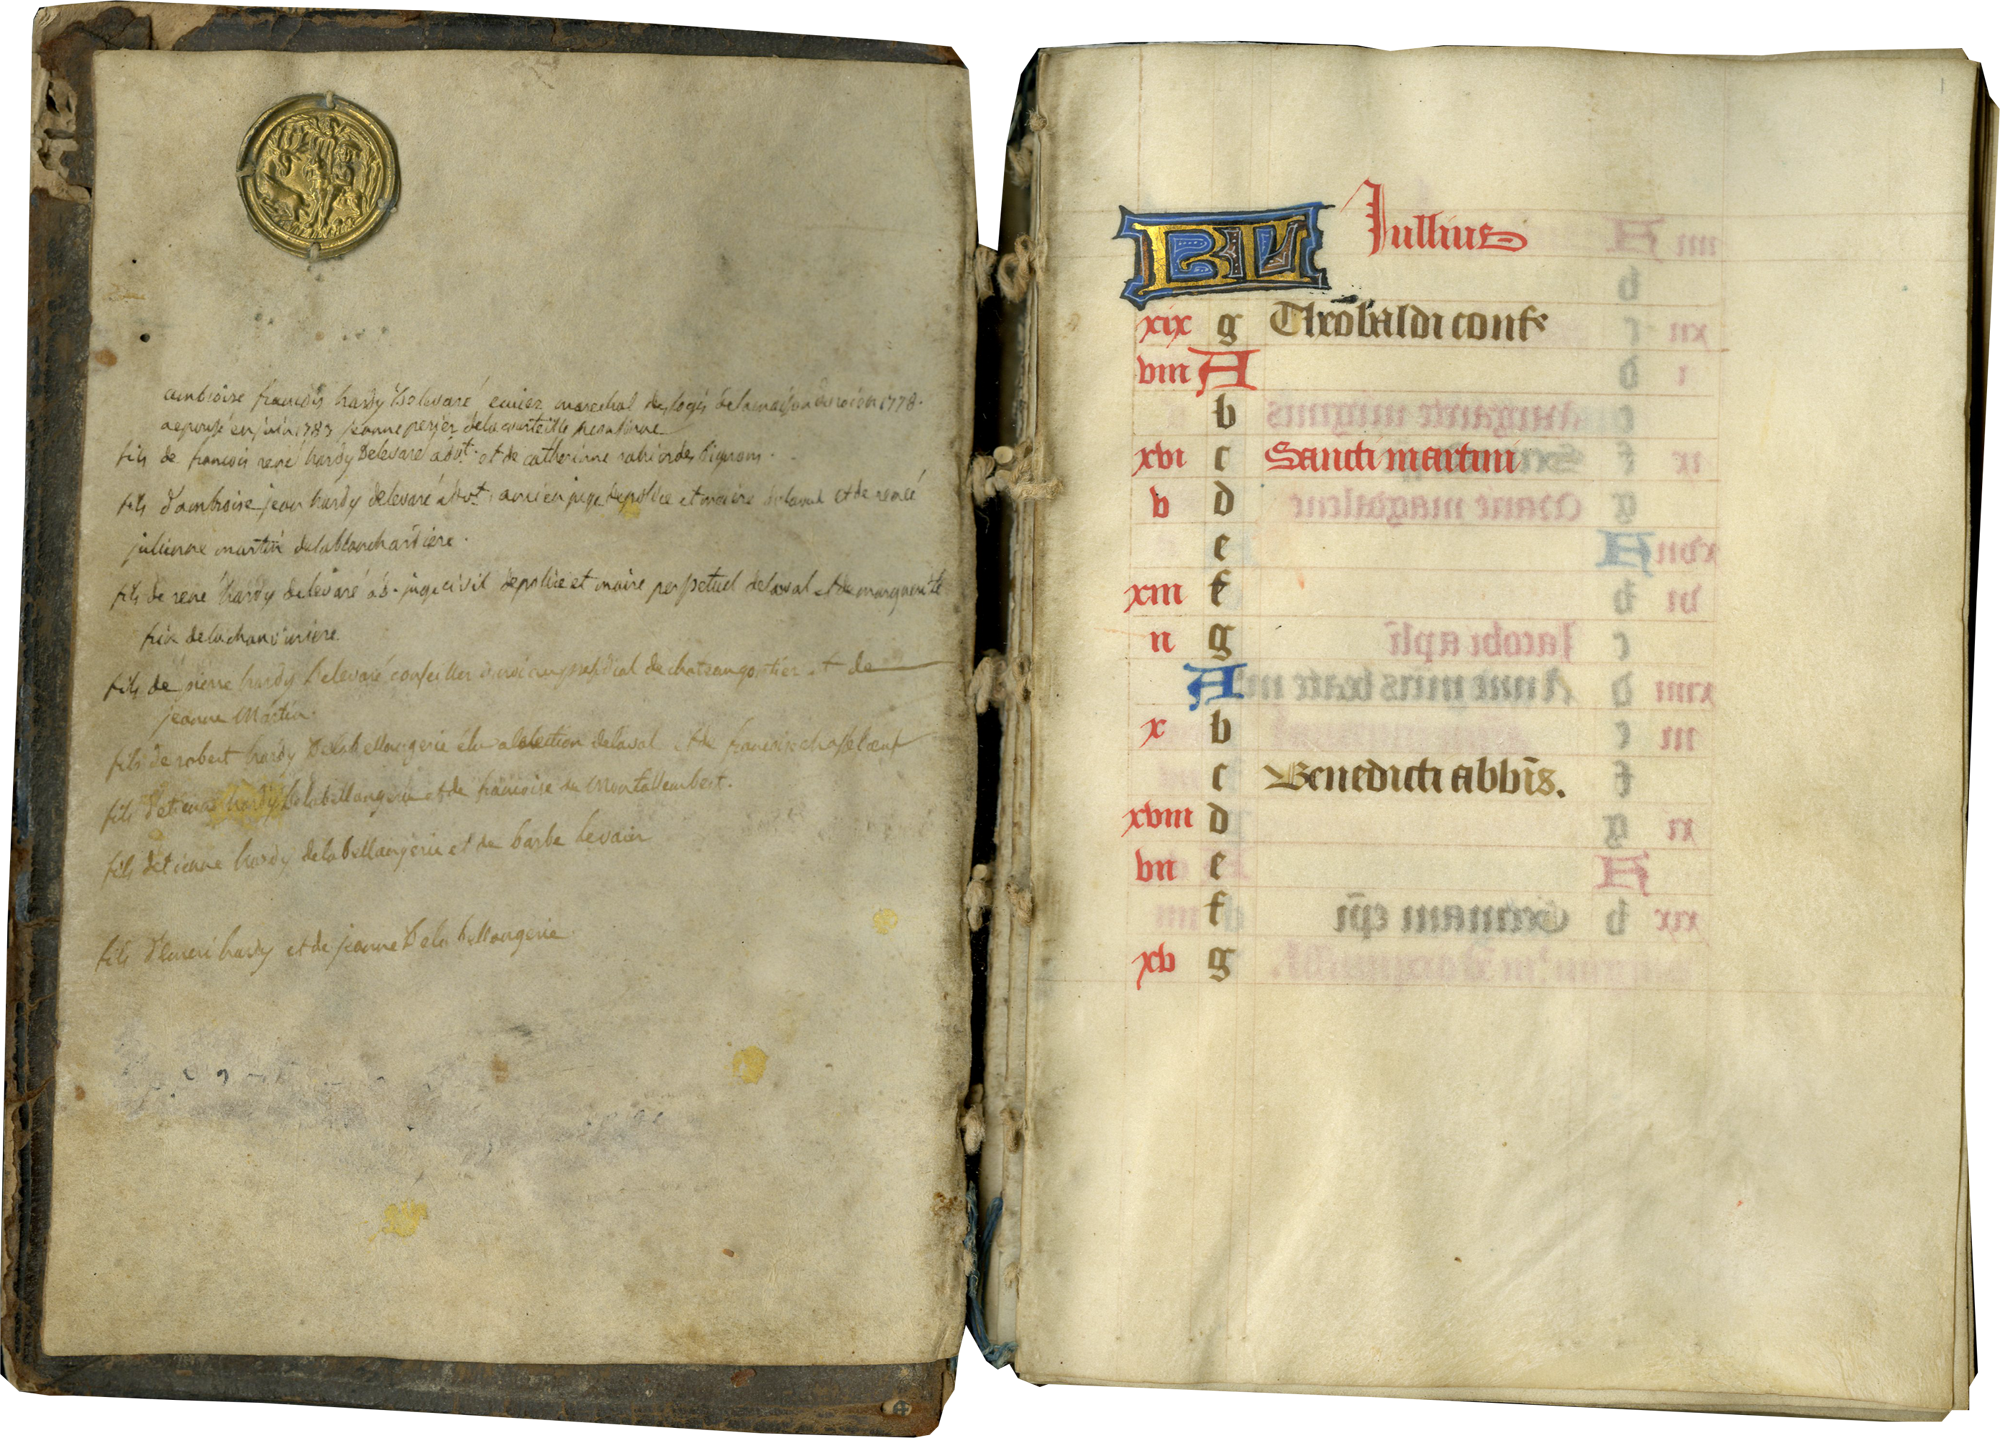 ambroise francois hardy Delevaré ecuier marechal des logis de la maison du roi en 1778.
a epousé en juin 1783 jeanne perier dela courteille
fils de francois rené hardy Delevaré advt. et de catherinne
fils d'ambroise jean hardy delevaré advt. ancien juge de police et maire de laval et de renée
julienne martin delablanchardiere.
fils de rené hardy delevaré ad. juge civil de police et maire perpetuel de laval et de marguerite
fils de pierre hardy Delevaré conseiller du roi au presidial de chateaugontier et de
jeanne Martin.
fils de robert hardy Dela bellangerie élu a lelection delaval et de francoise
fils d'etienne hardy de labellangerie et de francoise de Montallembert.
fils detienne hardy delabellangerie et de barbe levair
fils d'emeri hardy et de jeanne Dela bellangerie
KL Iullius
xix g Theobaldi confe
viii A
b
xvi c Sancti martini
v d
e
xiii f
ii g
A
x b
c Benedicti abbis.
xviii d
vii e
f
xv g